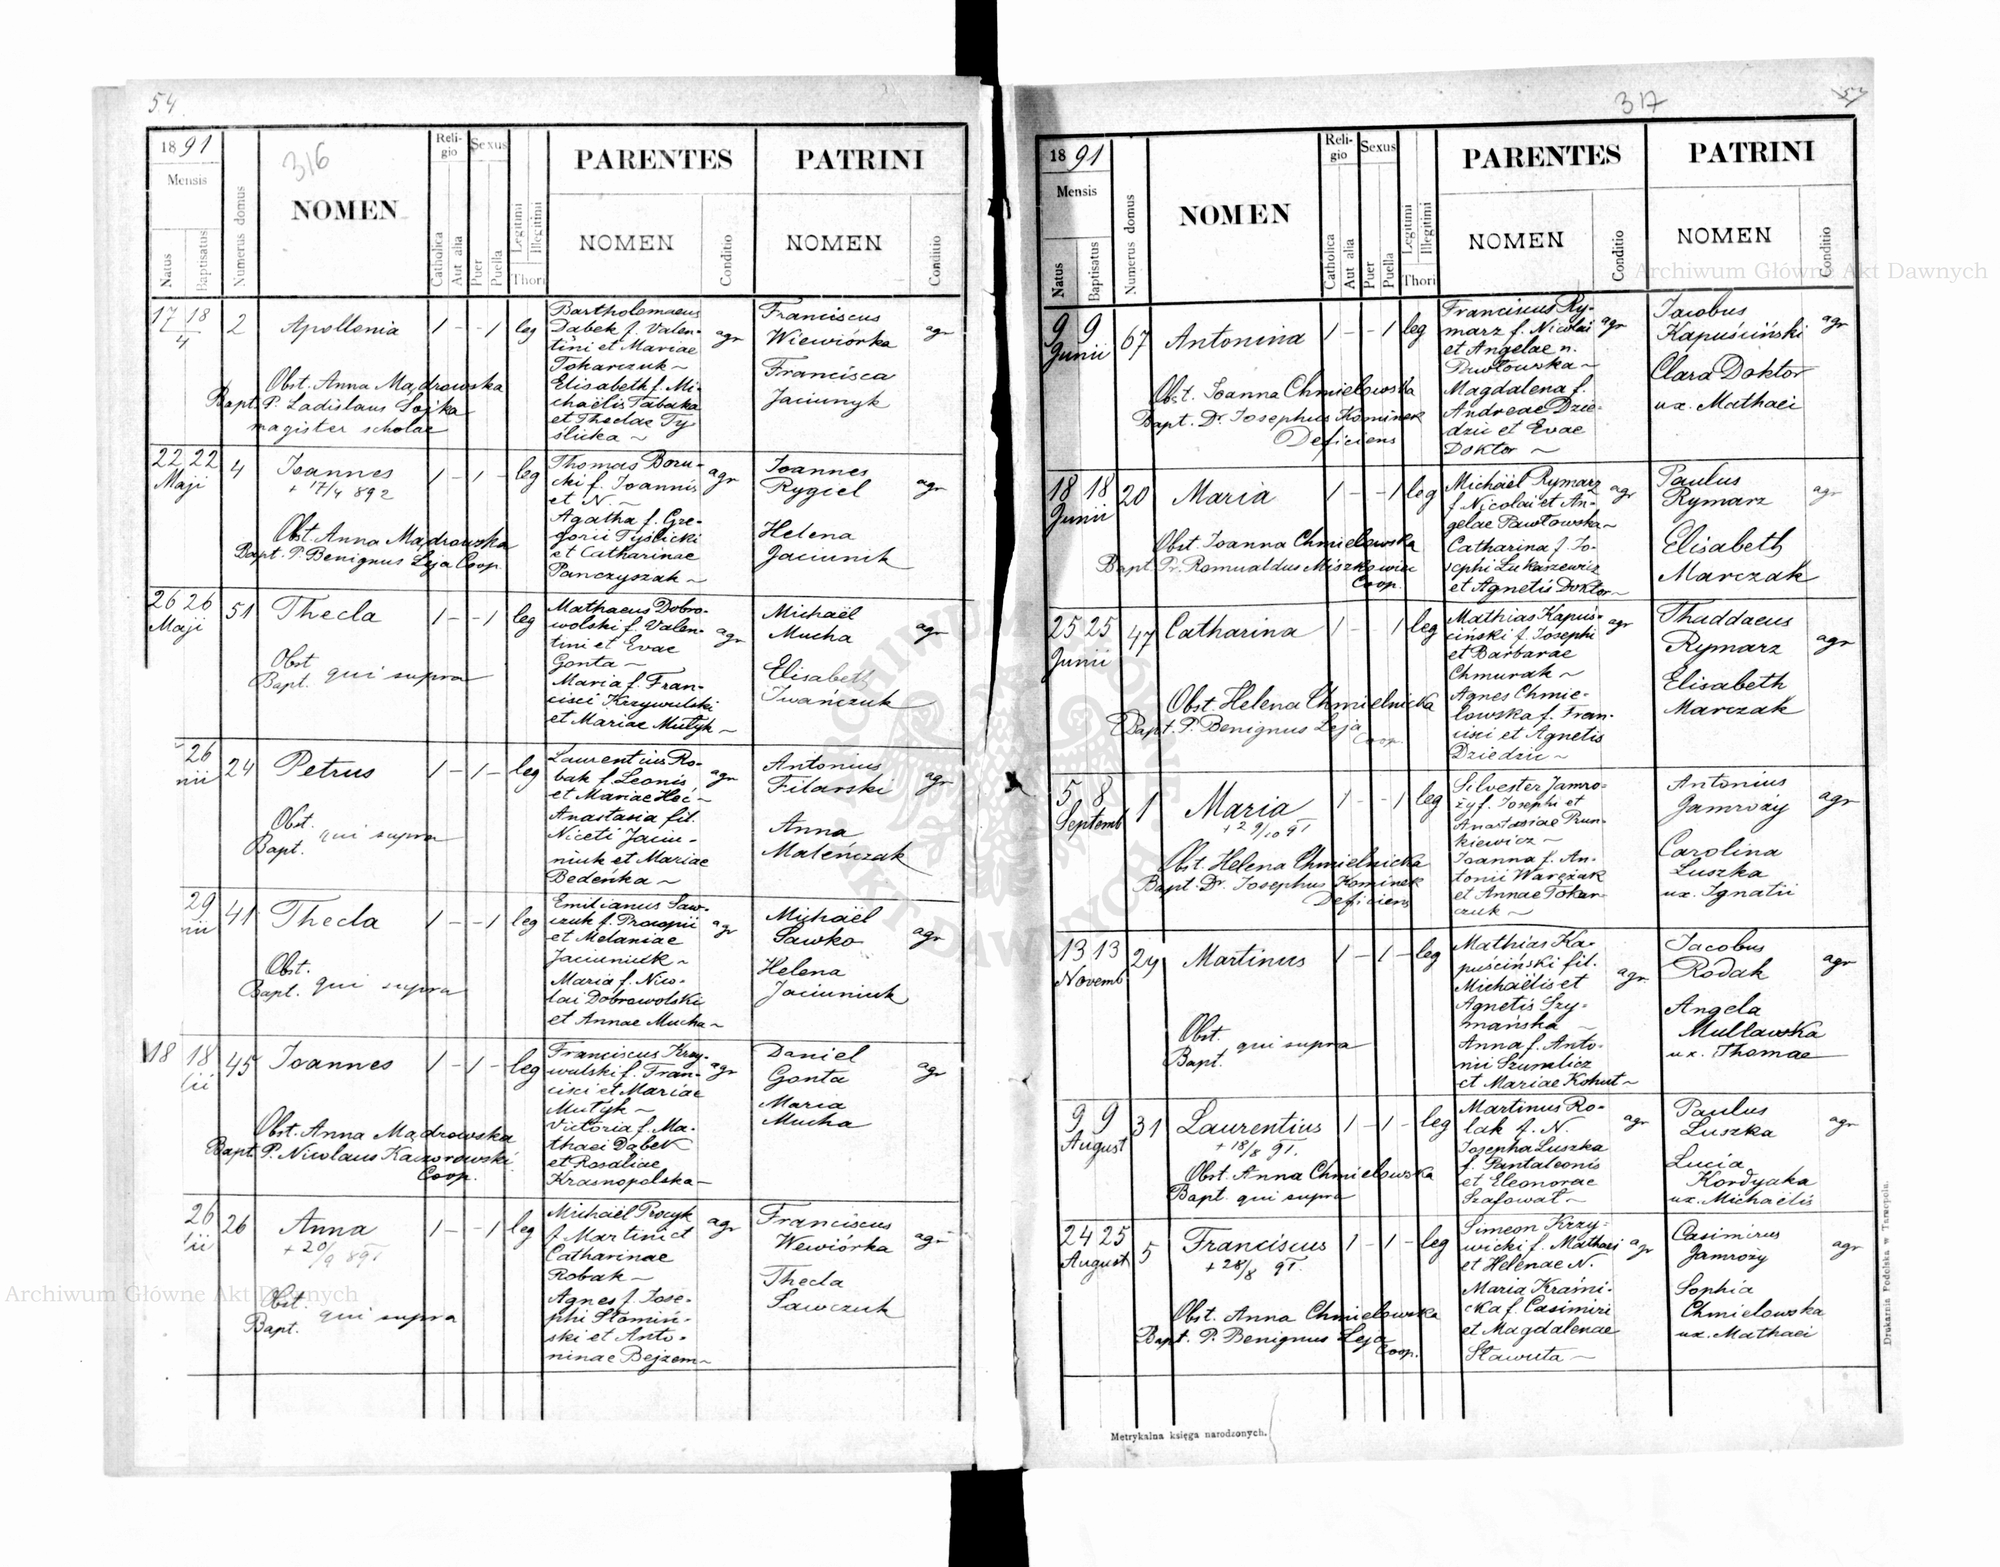 54
1891
316
Mensis
Natus
Baptisatus
Numerus domus
NOMEN
Religio
Catholica
Aut alia
Sexus
Puer
Puella
Legitimi
Illegitimi
Thori
PARENTES
NOMEN
Conditio
PATRINI
NOMEN
Conditio
17 18
4
2
Apollonia
1 - - 1 leg
Bartholomaeus
Dabek f. Valen-
tini et Mariae
Tokarczuk ~
Elisabeth f. Mi-
chaëlis Tabaka
et Theclae Ty
śluka ~
agr
Franciscus
Wiewiórka
Francisca
Jaciunyk
agr
Obst. Anna Mądrowska
Bapt. P. Ladislaus Sojka
magister scholae
22 22
Maji
4
Joannes
+ 17/4 892
1 - 1 - leg
Thomas Boru-
cki f. Joannis
et N. ~
Agatha f. Gre-
gorii Tyślicki
et Catharinae
Panczyszak ~
agr
Joannes
Rygiel
Helena
Jaciunik
agr
Obst. Anna Mądrowska
Bapt. P. Benignus Leja Coop.
26 26
Maji
51
Thecla
1 - - 1 leg
Mathaeus Dobro-
wolski f. Valen-
tini et Evae
Gonta ~
Maria f. Fran-
cisci Krzywulski
et Mariae Mutyk ~
agr
Michaël
Mucha
Elisabeth
Iwańczuk
agr
Obst.
Bapt. qui supra
26
nii
24
Petrus
1 - 1 - leg
Laurentius Ro-
bak f. Leonis
et Mariae Hoć ~
Anastasia fil.
Niceti Jaciu-
niuk et Mariae
Bedeńka ~
agr
Antonius
Filarski
Anna
Maleńczak
agr
Obst.
Bapt. qui supra
29
nii
41
Thecla
1 - - 1 leg
Emilianus Saw-
czuk f. Procopii
et Melaniae
Jaciuniuk ~
Maria f. Nico-
lai Dobrowolski
et Annae Mucha ~
agr
Michaël
Sawko
Helena
Jaciuniuk
agr
Obst.
Bapt. qui supra
18 18
lii
45
Joannes
1 - 1 - leg
Franciscus Krzy-
wulski f. Fran-
cisci et Mariae
Mutyk ~
Victoria f. Ma-
thaei Dąbek
et Rosaliae
Krasnopolska ~
agr
Daniel
Gonta
Maria
Mucha
agr
Obst. Anna Mądrowska
Bapt. P. Nicolaus Kaczorowski
Coop.
26
lii
26
Anna
+ 20/9 891
1 - - 1 leg
Michaël Procyk
f. Martini et
Catharinae
Robak ~
Agnes f. Jose-
phi Słomiń-
ski et Anto-
ninae Bejzem ~
agr
Franciscus
Wewiórka
Thecla
Sawczuk
agr
Obst.
Bapt. qui supra
317
1891
Mensis
Natus
Baptisatus
Numerus domus
NOMEN
Religio
Catholica
Aut alia
Sexus
Puer
Puella
Legitimi
Illegitimi
Thori
PARENTES
NOMEN
Conditio
PATRINI
NOMEN
Conditio
9 9
Junii
67
Antonina
1 - - 1 leg
Franciscus Ry-
marz f. Nicolai
et Angelae n.
Pawłowska ~
Magdalena f.
Andreae Dzie-
dzic et Evae
Doktor ~
agr
Jacobus
Kapuściński
Clara Doktor
ux. Mathaei
agr
Obst. Joanna Chmielowska
Bapt. Dr. Josephus Kominek
Deficiens
18 18
Junii
20
Maria
1 - - 1 leg
Michaël Rymarz
f. Nicolai et An-
gelae Pawłowska ~
Catharina f. Jo-
sephi Łukaszewicz
et Agnetis Doktor ~
agr
Paulus
Rymarz
Elisabeth
Marczak
agr
Obst. Joanna Chmielowska
Bapt. Pr. Romualdus Miszkowiec
Coop.
25 25
Junii
47
Catharina
1 - 1 leg
Mathias Kapuś-
ciński f. Josephi
et Barbarae
Chmurak ~
Agnes Chmie-
lowska f. Fran-
cisci et Agnetis
Dziedzic ~
agr
Thaddaeus
Rymarz
Elisabeth
Marczak
agr
Obst. Helena Chmielnicka
Bapt. P. Benignus Leja
Coop.
5 8
Septemb
1
Maria
+ 29/10 91
1 - - 1 leg
Silvester Jamro-
ży f. Josephi et
Anastasiae Prun-
kiewicz ~
Joanna f. An-
tonii Warężak
et Annae Tokar-
czuk ~
Antonius
Jamroży
Carolina
Łuszka
ux. Ignatii
agr
Obst. Helena Chmielnicka
Bapt. Dr. Josephus Kominek
Deficiens
13 13
Novemb
24
Martinus
1 - 1 - leg
Mathias Ka-
puściński fil.
Michaëlis et
Agnetis Szy-
mańska ~
Anna f. Anto-
nii Szumlicz
et Mariae Kohut ~
agr
Jacobus
Rodak
Angela
Mulławka
ux. Thomae
agr
Obst.
Bapt. qui supra
9 9
August
31
Laurentius
+ 18/8 91.
1 - 1 - leg
Martinus Ro-
lak f. N.
Josepha Łuszka
f. Pantaleonis
et Eleonorae
Szafowat ~
agr
Paulus
Łuszka
Lucia
Kordyaka
ux. Michaëlis
agr
Obst. Anna Chmielowska
Bapt. qui supra
24 25
August
5
Franciscus
+ 28/8 91.
1 - 1 - leg
Simeon Krzy-
wicki f. Mathaei
et Helenae N.
Maria Kraini-
cka f. Casimiri
et Magdalenae
Sławuta ~
agr
Casimirus
Jamroży
Sophia
Chmielowska
ux. Mathaei
agr
Obst. Anna Chmielowska
Bapt. P. Benignus Leja
Coop.
Metrykalna księga narodzonych.
Drukarnia Podolska w Tarnopolu.
Archiwum Główne Akt Dawnych
Archiwum Główne Akt Dawnych
ARCHIWUM GŁÓWNE AKT DAWNYCH